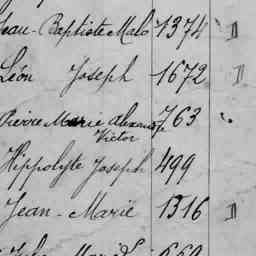 Jean-Baptiste Malo 1374 II
Léon Joseph 1672 II
Pierre Marie Alexandre 763
Victor
Hippolyte Joseph 499
Jean-Marie 1316 II